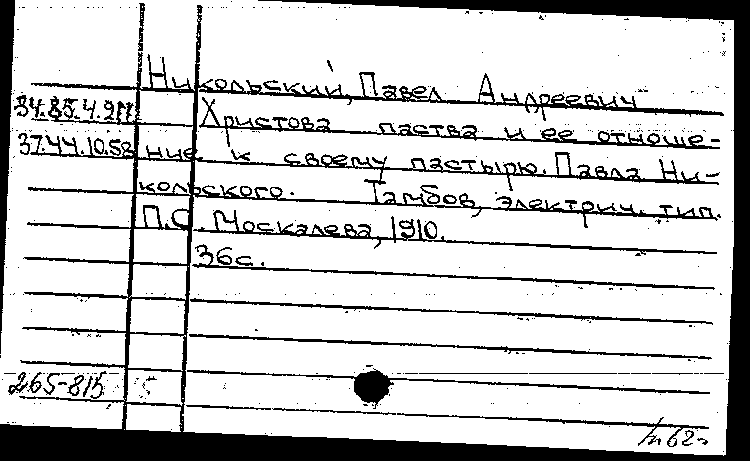 Никольский, Павел Андреевич
34.85.4.211 Христова паства и ее отноше-
37.44.10.58 ние к своему пастырю. Павла Ни-
кольского. Тамбов, электрич. тип.
П.С. Москалева, 1910.
36с.
265-815 5